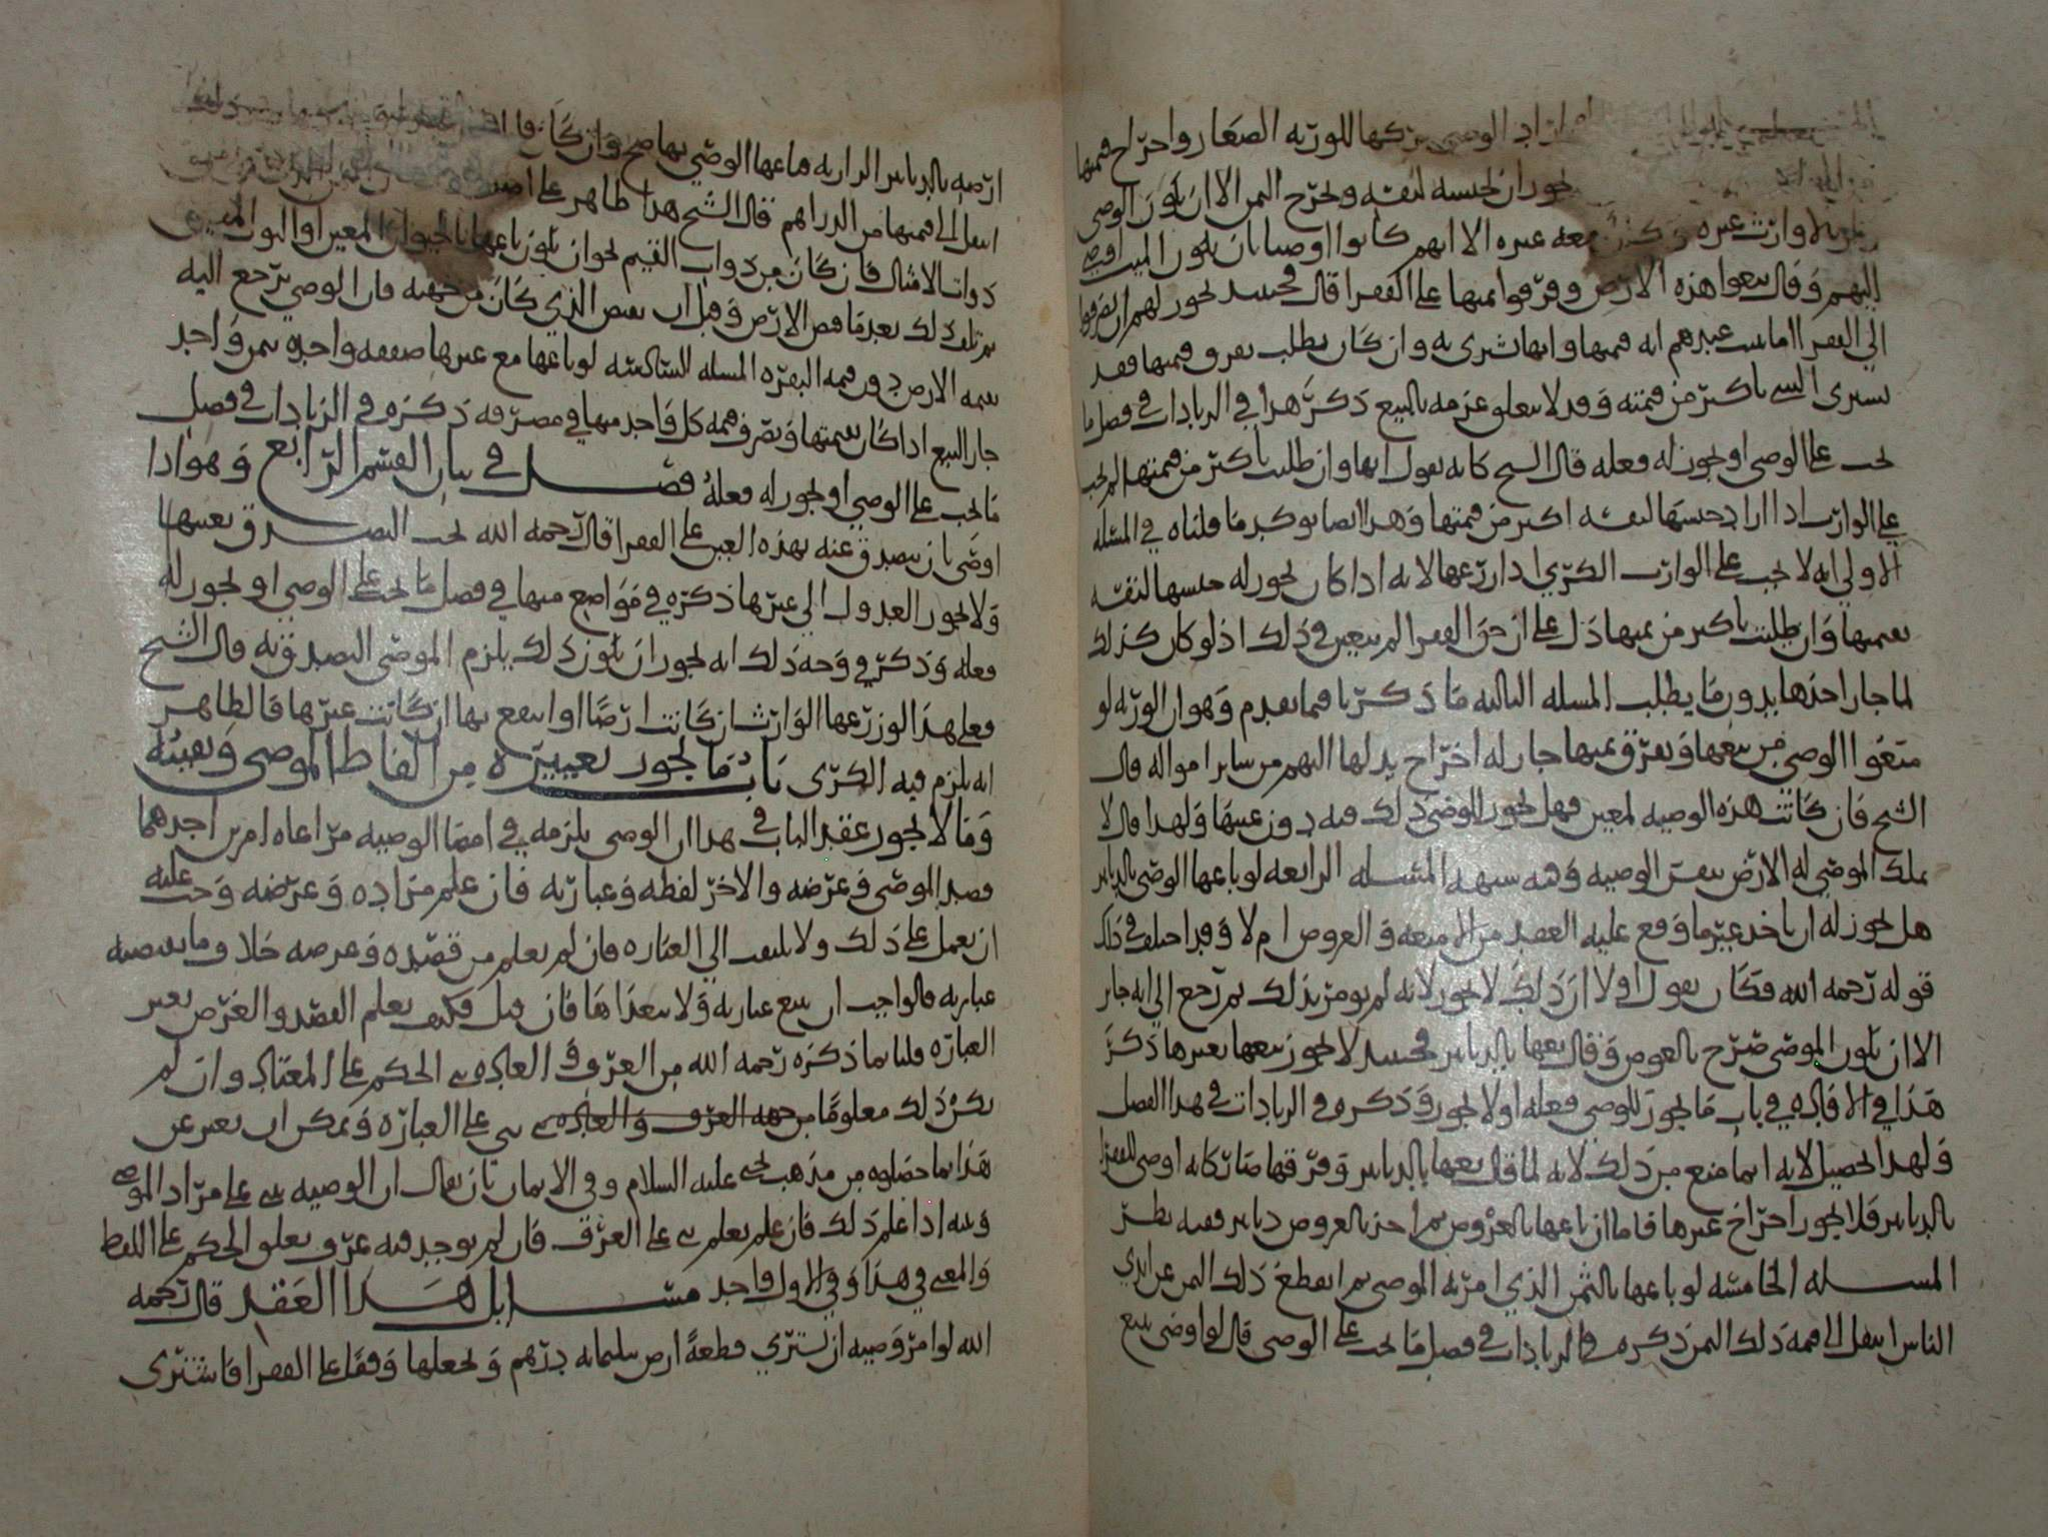 اراد الوصي تركها للورثه الصغار واخراج قيمتها
يجوز ان يحبسه لنفسه ويخرج الثمن الا ان يكون الوصي
وارث غيره معه غيره الا انهم كانوا اوصيا بان يكون الميت اوصى
اليهم وقال بيعوا هذه الارض وفرقوا ثمنها على الفقرا قال فحينئذ يجوز لهم ان يصرفوا
الى الفقرا اما من عندهم انه قيمتها وانها تشرى به وان كان يطلب بعرف قيمتها فقد
يشترى الشي باكثر من قيمته وقد لا يتعلق عزمه بالبيع ذكر هذا في الزيادات في فصل ما
يجب على الوصي او يجوز له فعله قال الشيخ كانه يقول انها وان طلبت باكثر من قيمتها لم يجب
على الوارث اذا اراد حبسها لنفسه اكثر من قيمتها وهذا ايضا يوكد ما قلناه في المسئله
الاولى انه لا يجب على الوارث الكرى اذا زرعها لانه اذا كان يجوز له حبسها لنفسه
بقيمتها وان طلبت باكثر من ثمنها دل على ان حق الفقرا لم يتعين في ذلك اذ لو كان كذلك
لما جاز اخذها بدون ما يطلب المسله الثالثه ما ذكرنا فيما تقدم وهو ان الورثه لو
منعوا الوصي من بيعها وتفرق ثمنها جاز له اخراج بدلها اليهم من ساير امواله قال
الشيخ فان كانت هذه الوصيه لمعين فهل يجوز للوصي ذلك فيه دون عينها ولهذا قال لا
يملك الموصى له الارض بنفس الوصيه وفيه شبهه المسئله الرابعه لو باعها الوصي بالدنانير
هل يجوز له ان ياخذ غير ما وقع عليه العقد من الامتعه والعروض ام لا وقد اختلف في ذلك
قوله رحمه الله فكان يقول اولا ان ذلك لا يجوز لانه لم يومر بذلك ثم رجع الى انه جايز
الا ان يكون الموصي صرح بالعوض وقال بعها بالدنانير فحينئذ لا يجوز بيعها بغيرها ذكر
هذا في الافاده في باب ما يجوز للوصي فعله او لا يجوز وذكره في الزيادات في هذا الفصل
ولهذا التحصيل لانه انما منع من ذلك لانه لما قال بعها بالدنانير وفرقها صار كانه اوصى للفقرا
بالدنانير فلا يجوز اخراج غيرها فاما ان باعها بالعروض ثم اخذ بالعروض دنانير ففيه نظر
المسله الخامسه لو باعها بالثمن الذي امر به الموصي ثم انقطع ذلك الثمن عن ايدي
الناس انتقل الى قيمه ذلك الثمن ذكره في الزيادات في فصل ما يجب على الوصي قال لو اوصى ببيع
ارضه بالدنانير الرازيه فباعها الوصي بها صح وان كان
انتقل الى قيمتها من الدراهم قال الشيخ هذا ظاهر على
ذوات الامثال فان كان من ذوات القيم نحو ان يكون باعها بالحيوان المعين او الثوب المعين
ثم تلف ذلك بعد ما قبض الارض وقبل ان يقبض الذي كان من جهته فان الوصي يرجع اليه
بقيمه الارض دون قيمه البقره المسله السادسه لو باعها مع غيرها صفقه واحده بثمن واحد
جاز البيع اذا كان بقيمتها وتصرف قيمه كل واحد منها في مصرفه ذكره في الزيادات في فصل
ما يجب على الوصي او يجوز له فعله فصل في بيان القسم الرابع وهو اذا
اوصى بان يتصدق عنه بهذه العين على الفقرا قال رحمه الله يجب التصدق بعينها
ولا يجوز العدول الى غيرها ذكره في مواضع منها في فصل ما يجب على الوصي او يجوز له
فعله وذكر في وجه ذلك انه يجوز ان يكون ذلك يلزم الموصي التصدق به قال الشيخ
فعلى هذا لو زرعها الوارث ان كانت ارضًا او انتفع بها ان كانت غيرها فالظاهر
انه يلزم فيه الكرى باب ما يجوز تغييره من الفاظ الموصي وتعيينه
وما لا يجوز عقد الباب في هذا ان الوصي يلزمه في امضا الوصيه مراعاه امرين احدهما
قصد الموصي وغرضه والاخر لفظه وعبارته فان علم مراده وغرضه وجب عليه
ان يعمل على ذلك ولا يلتفت الى العباره فان لم يعلم من قصده وغرضه خلاف ما تقتضيه
عبارته فالواجب ان يتبع عبارته ولا يتعداها فان قيل فكيف يعلم القصد والغرض بغير
العباره قلنا بما ذكره رحمه الله من العرف في العاده بنى الحكم على المعتاد وان لم
يكن ذلك معلومًا من جهه العرف والعاده بنى على العباره ويمكن ان يعبر عن
هذا بما حصلوه من مذهب يحيى عليه السلام وفي الايمان بان يقال ان الوصيه بنى على مراد الموصي
ونيته اذا علم ذلك فان لم يعلم بنى على العرف فان لم يوجد فيه عرف تعلق الحكم على اللفظ
والمعنى في هذا وفي الاول واحد مسايل هذا العقد قال رحمه
الله لو امر وصيه ان يشتري قطعهً ارض سليمانه بدرهم ويجعلها وقفًا على الفقرا فاشترى